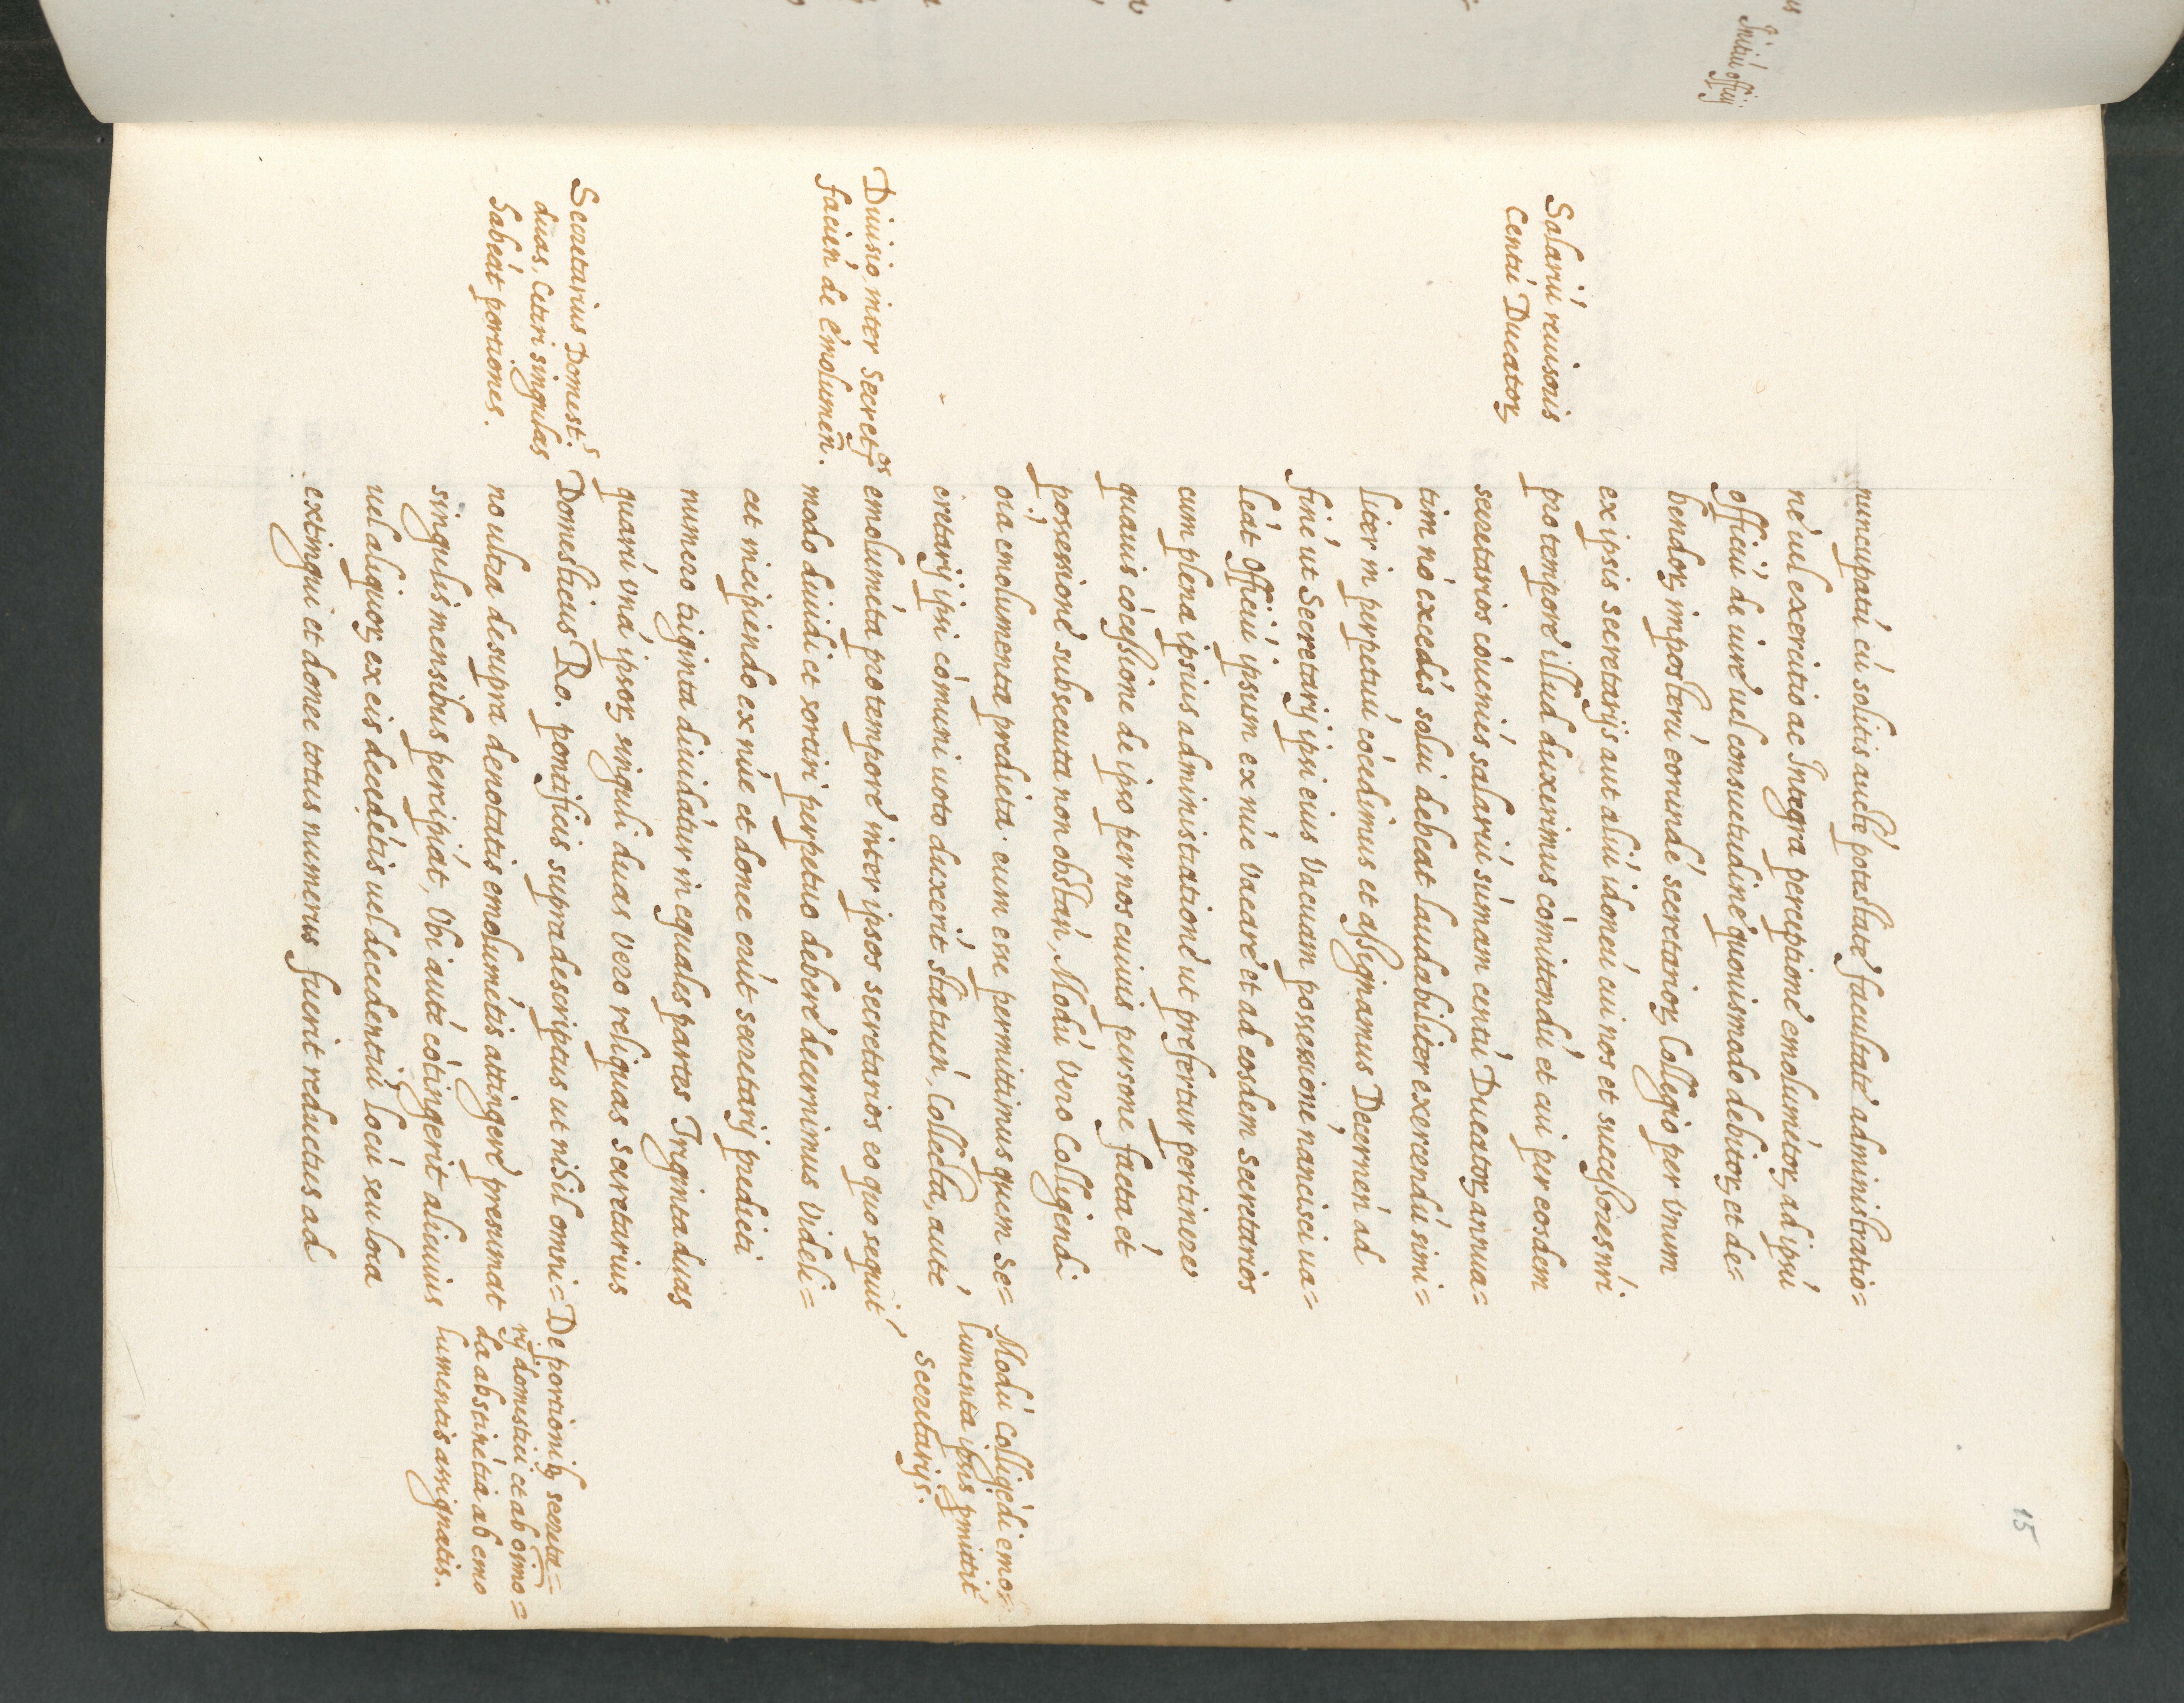 15
nuncupatū cū solitis auctē potestatē facultatē administratio=
nē uel exercitio ac Integra perceptionē emolumētoꝝ ad ipsū
officiū de iurē uel consuetudinē quouismodo debitoꝝ et de=
bendoꝝ imposterū eorundē secretarioꝝ Collegio per Vnum
ex ipsis secretarijs aut aliū idoneū cui nos et successores nri
pro temporē illud duxerimus cōmittendū et cui per eosdem
secretarios cōueniēs salariū sūmam centū Ducatoꝝ annua=
tim nō excedēs solui debeat laudabiliter exercendū simi=
liter in perpetuū cōcedimus et assignamus Decernen̄ ad
finē ut Secretarij ipsi eius Vacuam possessionē nancisci ua=
leāt Officiū ipsum ex nūc Vacarē et ad eosdem Secretarios
cum plena ipsius administrationē ut prefertur pertinerē
quauis cōcessione de ipso per nos cuiuis persone facta et
possessionē subsecuta non obstan̄, Modū Vero Colligendi
oīa emolumenta predicta eum esse permittimus quem Se=
cretarij ipsi cōmuni uoto duxerīt statuen̄, Collecta, autē
emolumēta pro temporē inter ipsos secretarios eo quo sequit̄
modo diuidi et sortiri perpetuo deberē decernimus Videli=
cet incipiendo ex nūc et donec erūt secretarij predicti
numero triginta diuidātur in equales partes Triginta duas
quarū Vnā ipsoꝝ singuli duas Vero reliquas Secretarius
Domesticus Ro. pontificis supradescriptus ut nihil omni=
no ultra desupra denotatis emolumētis attingerē presumat
singulis mensibus percipiāt, Vbi autē cōtingerit alicuius
uel aliquoꝝ ex eis decedētis uel decedentiū locū seu loca
extingui et donec totus numerus fuerit reductus ad
Salariū reuisoris
Centū Ducatoꝝ
Diuisio, inter Secretos
facien̄ de Emolumen̄.
Secretarius Domest.s
duas. Ceteri singulas
habeāt portiones.
Modū Colligēdi emo=
lumenta ipsis pmittit
Secretarijs.
De portionibꝫ secreta=
rij domestici et ab oīmo=
da abstinētia ab emo
lumentis assignatis.
Initiū officij